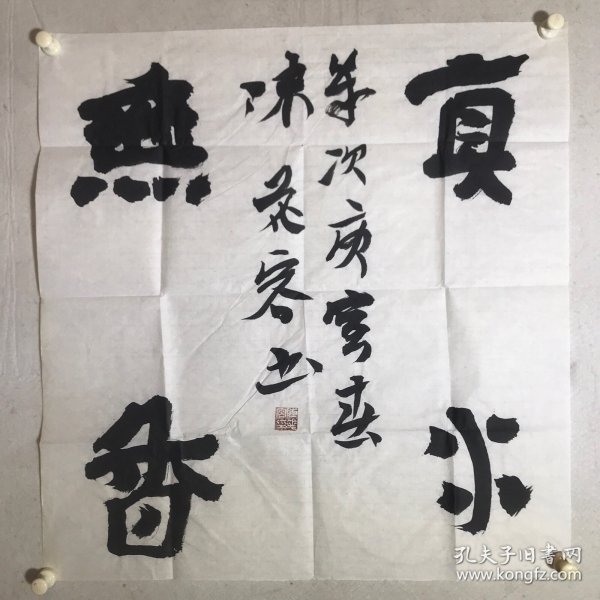 真水
無香
岁次庚寅春
陈花容书
孔夫子旧书网
www.kongfz.com